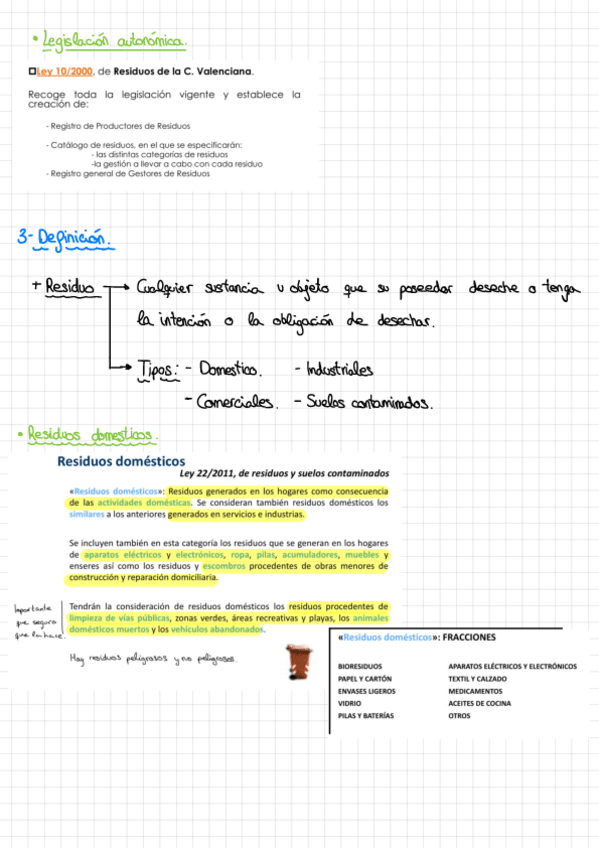 • Legislación autonómica.
Ley 10/2000, de Residuos de la C. Valenciana.
Recoge toda la legislación vigente y establece la
creación de:
- Registro de Productores de Residuos
- Catálogo de residuos, en el que se especificarán:
- las distintas categorías de residuos
-la gestión a llevar a cabo con cada residuo
- Registro general de Gestores de Residuos
3- Definición.
+ Residuo → Cualquier sustancia u objeto que su poseedor deseche o tenga
la intención o la obligación de desechar.
→ Tipos: - Domestico. - Industriales
- Comerciales. - Suelos contaminados.
• Residuos domesticos.
Residuos domésticos
Ley 22/2011, de residuos y suelos contaminados
«Residuos domésticos»: Residuos generados en los hogares como consecuencia
de las actividades domésticas. Se consideran también residuos domésticos los
similares a los anteriores generados en servicios e industrias.
Se incluyen también en esta categoría los residuos que se generan en los hogares
de aparatos eléctricos y electrónicos, ropa, pilas, acumuladores, muebles y
enseres así como los residuos y escombros procedentes de obras menores de
construcción y reparación domiciliaria.
Importante
que seguro
que la hace.
Tendrán la consideración de residuos domésticos los residuos procedentes de
limpieza de vías públicas, zonas verdes, áreas recreativas y playas, los animales
domésticos muertos y los vehículos abandonados.
Hay residuos peligrosos y no peligrosos.
«Residuos domésticos»: FRACCIONES
BIORESIDUOS APARATOS ELÉCTRICOS Y ELECTRÓNICOS
PAPEL Y CARTÓN TEXTIL Y CALZADO
ENVASES LIGEROS MEDICAMENTOS
VIDRIO ACEITES DE COCINA
PILAS Y BATERÍAS OTROS